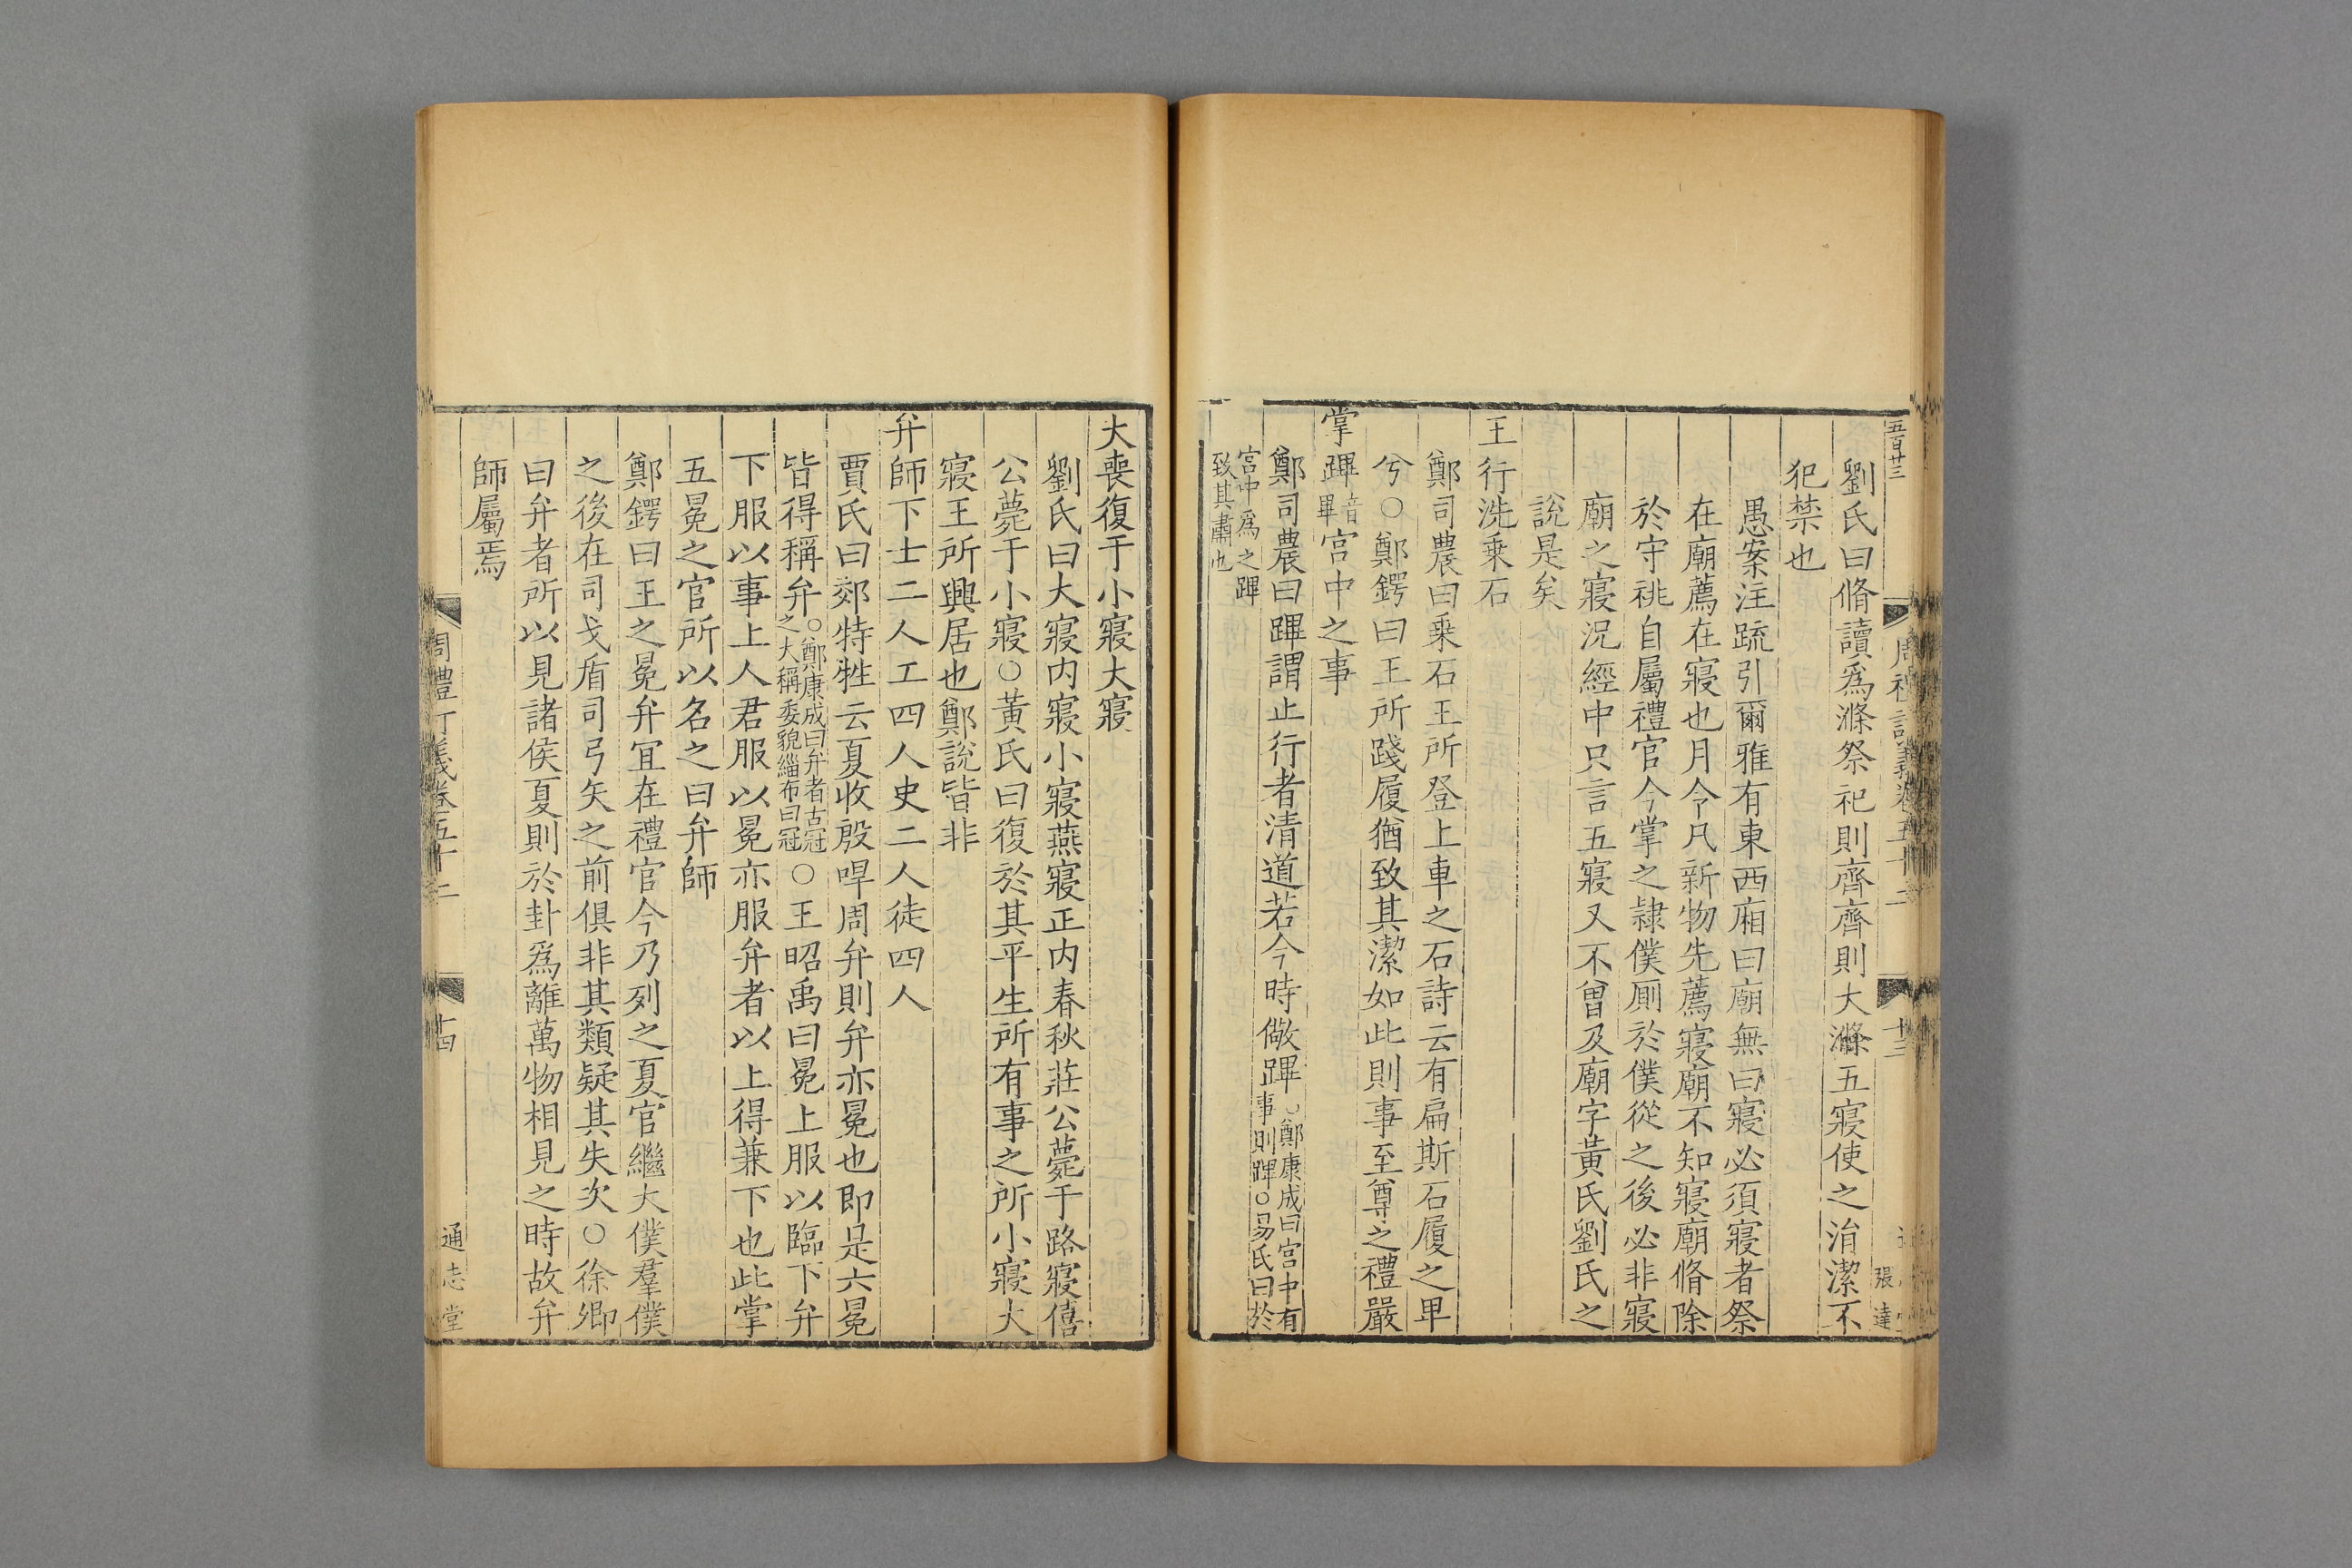 五百廿三
劉氏曰脩讀爲滌祭祀則齊齊則大滌五寢使之涓潔不
犯禁也
愚案注疏引爾雅有東西廂曰廟無曰寢必須寢者祭
在廟薦在寢也月令凡新物先薦寢廟不知寢廟脩除
於守祧自屬禮官今掌之隷僕厠於僕從之後必非寢
廟之寢況經中只言五寢又不曾及廟字黃氏劉氏之
說是矣
王行洗乗石
鄭司農曰乗石王所登上車之石詩云有扁斯石履之𤰞
兮○鄭鍔曰王所踐履猶致其潔如此則事至尊之禮嚴
掌蹕音畢宫中之事
鄭司農曰蹕謂止行者清道若今時儆蹕○鄭康成曰宫中有事則蹕○易氏曰於
宫中爲之蹕致其肅也
張達
大喪復于小寢大寢
劉氏曰大寢内寢小寢燕寢正内春秋莊公薨于路寢僖
公薨于小寢○黃氏曰復於其平生所有事之所小寢大
寢王所興居也鄭說皆非
弁師下士二人工四人史二人徒四人
賈氏曰郊特牲云夏收殷哻周弁則弁亦冕也即是六冕
皆得稱弁○鄭康成曰弁者古冠之大稱委貌緇布曰冠○王昭禹曰冕上服以臨下弁
下服以事上人君服以冕亦服弁者以上得兼下也此掌
五冕之官所以名之曰弁師
鄭鍔曰王之冕弁宜在禮官今乃列之夏官繼大僕羣僕
之後在司戈盾司弓矢之前俱非其類疑其失次○徐卿
曰弁者所以見諸侯夏則於卦爲離萬物相見之時故弁
師屬焉
周禮訂義卷五十二
十四
通志堂